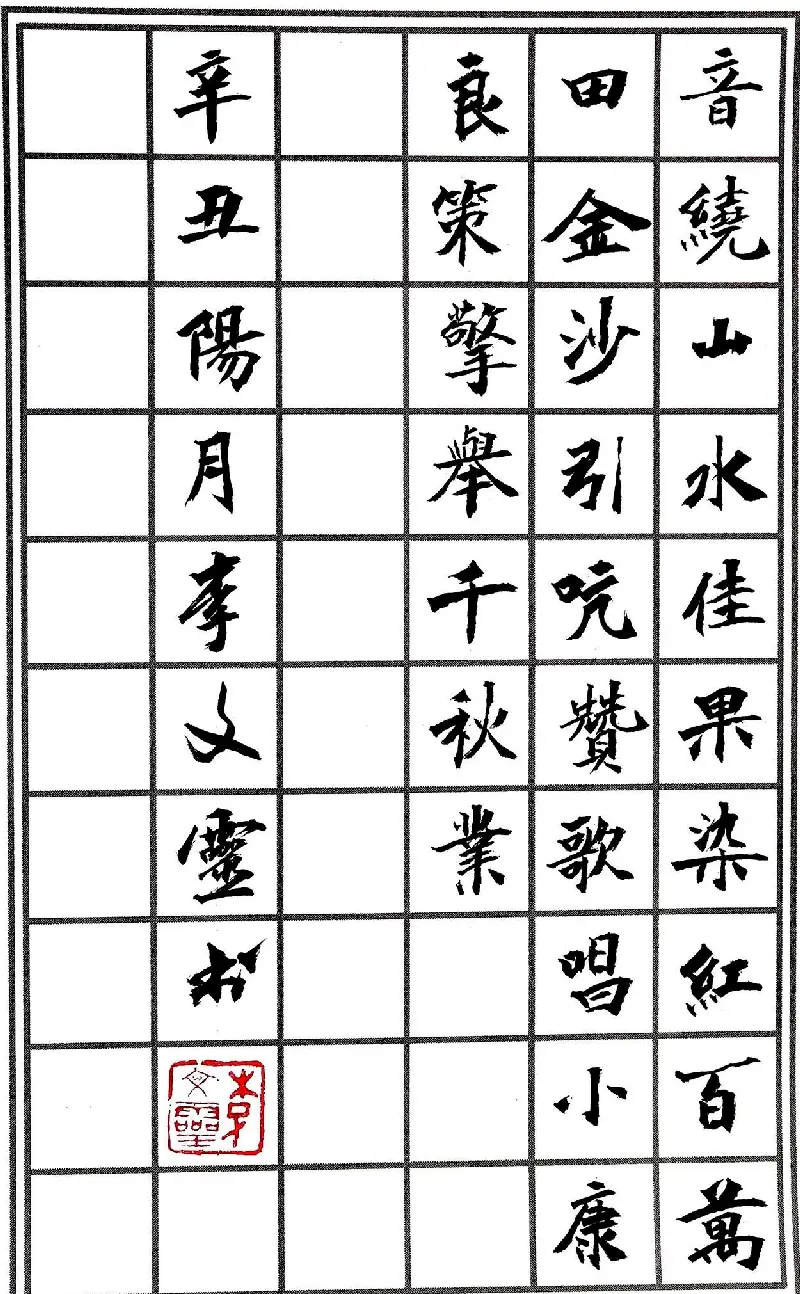 音繞山水佳果染紅百萬
田金沙引吭贊歌唱小康
良策擎舉千秋業
辛丑陽月李文靈书
李文靈